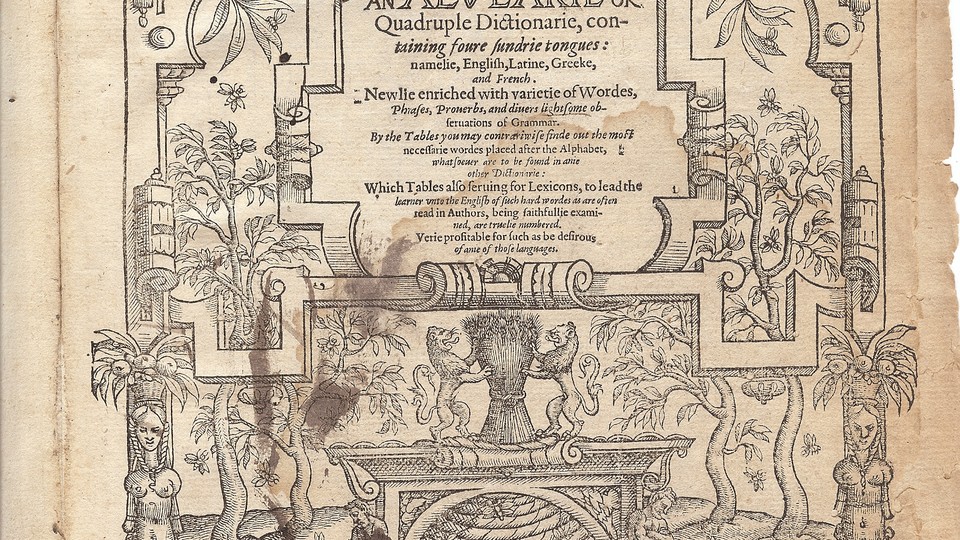 AN ALVEARIE OR
Quadruple Dictionarie, con-
taining foure ſundrie tongues:
namelie, Engliſh, Latine, Greeke,
and French.
Newlie enriched with varietie of Wordes,
Phraſes, Prouerbs, and diuers lightſome ob-
ſeruations of Grammar.
By the Tables you may contrariwiſe finde out the moſt
neceſſarie wordes placed after the Alphabet,
whatſoeuer are to be found in anie
other Dictionarie:
Which Tables alſo ſeruing for Lexicons, to lead the
learner vnto the Engliſh of ſuch hard wordes as are often
read in Authors, being faithfullie exami-
ned, are truelie numbered.
Verie profitable for ſuch as be deſirous
of anie of thoſe languages.